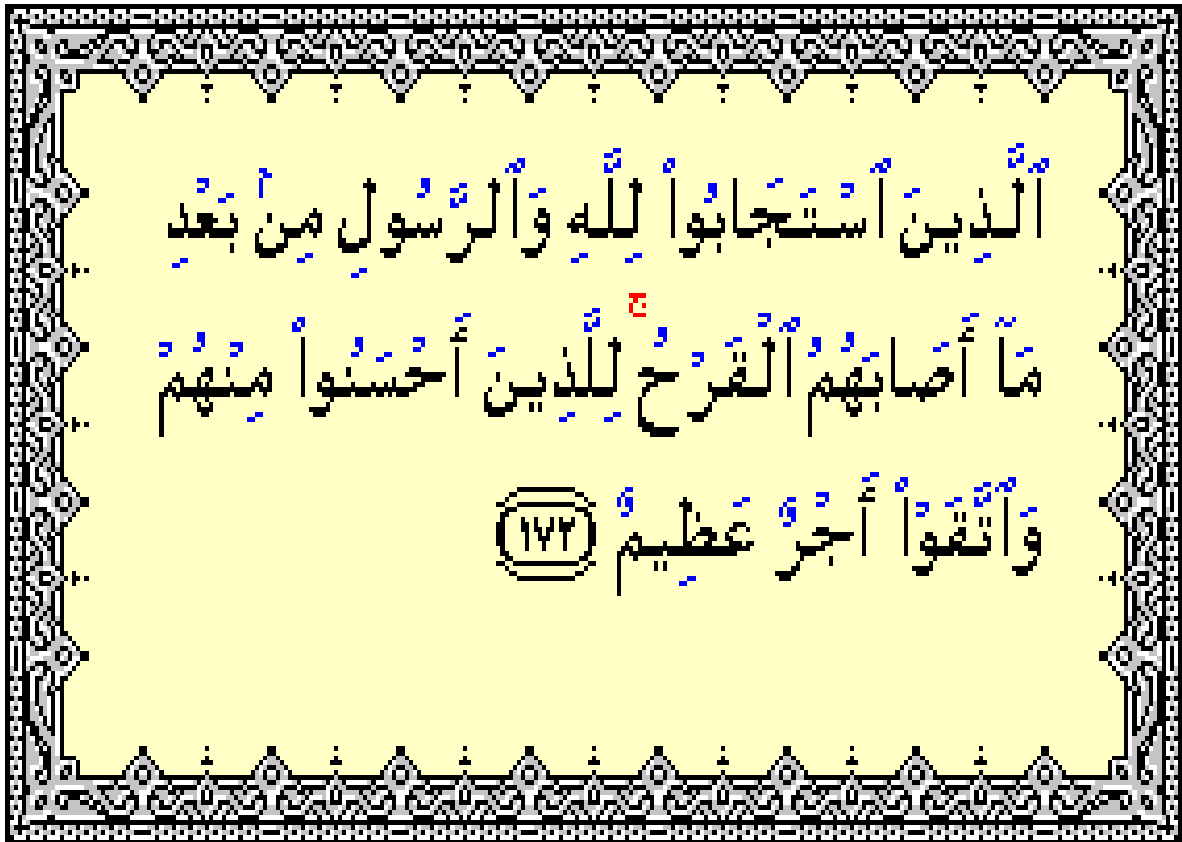 ٱلَّذِينَ ٱسْتَجَابُوا۟ لِلَّهِ وَٱلرَّسُولِ مِنۢ بَعْدِ
مَآ أَصَابَهُمُ ٱلْقَرْحُ ۚ لِلَّذِينَ أَحْسَنُوا۟ مِنْهُمْ
وَٱتَّقَوْا۟ أَجْرٌ عَظِيمٌ ١٧٢